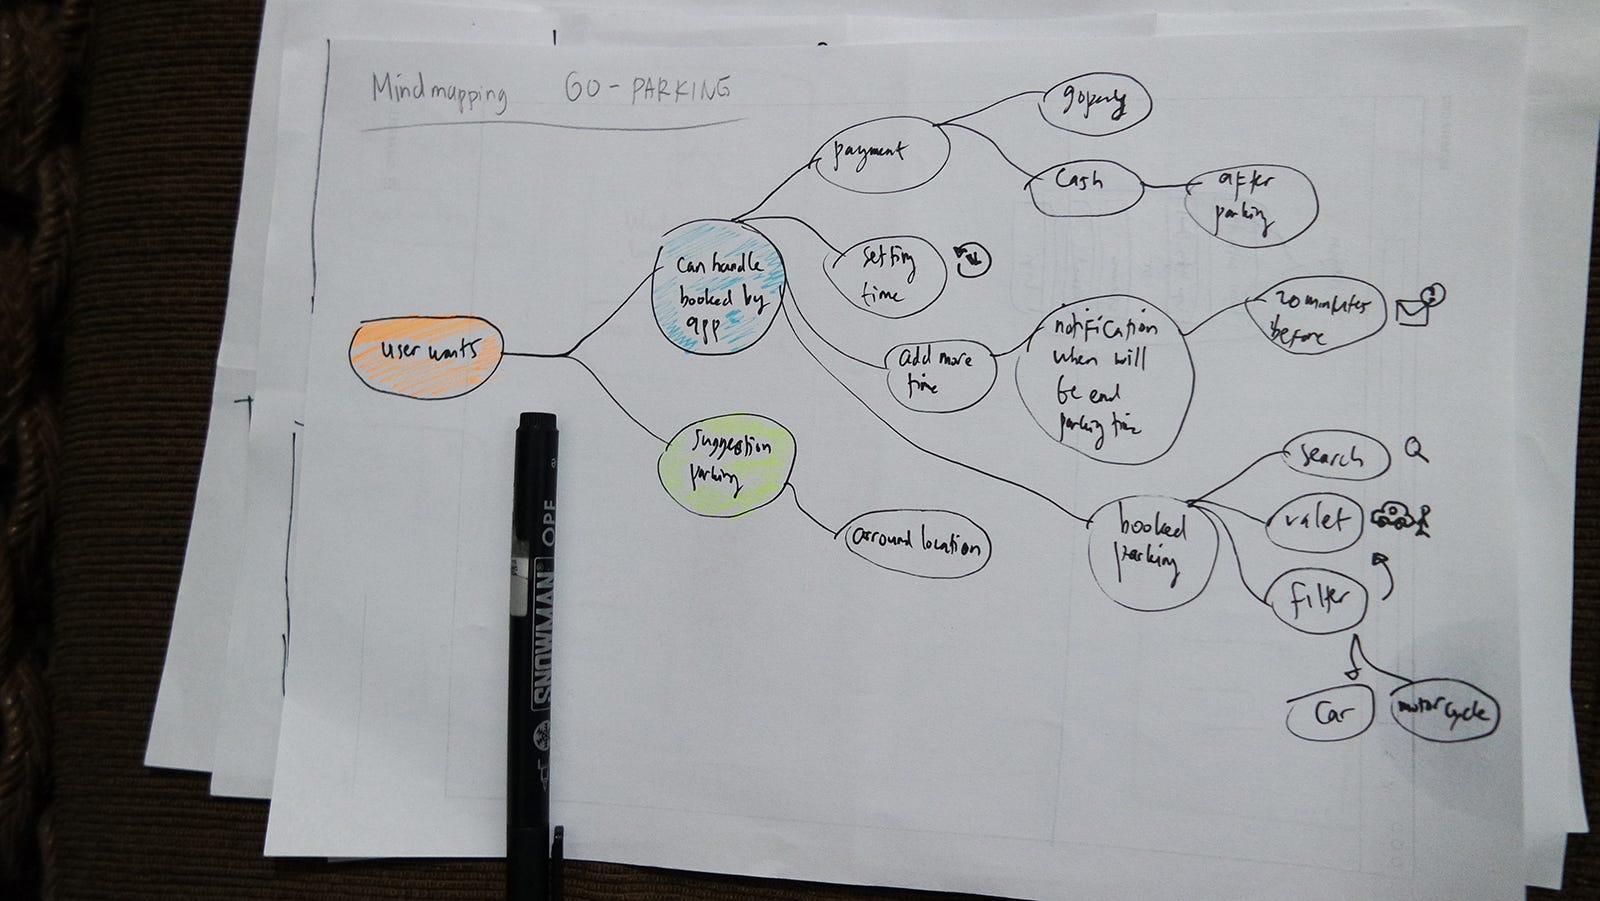 Mindmapping GO-PARKING
user wants
can handle
booked by
app
payment
gopay
cash
after
parking
setting
time
add more
time
notification
when will
be end
parking time
20 minutes
before
booked
parking
search
valet
filter
car
motorcycle
suggestion
parking
arround location
SNOWMAN
OPF